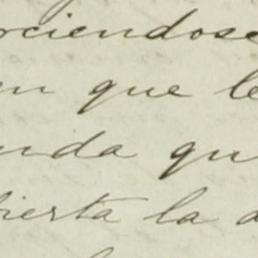 rciendose
en que le
nda qu
bierta la d